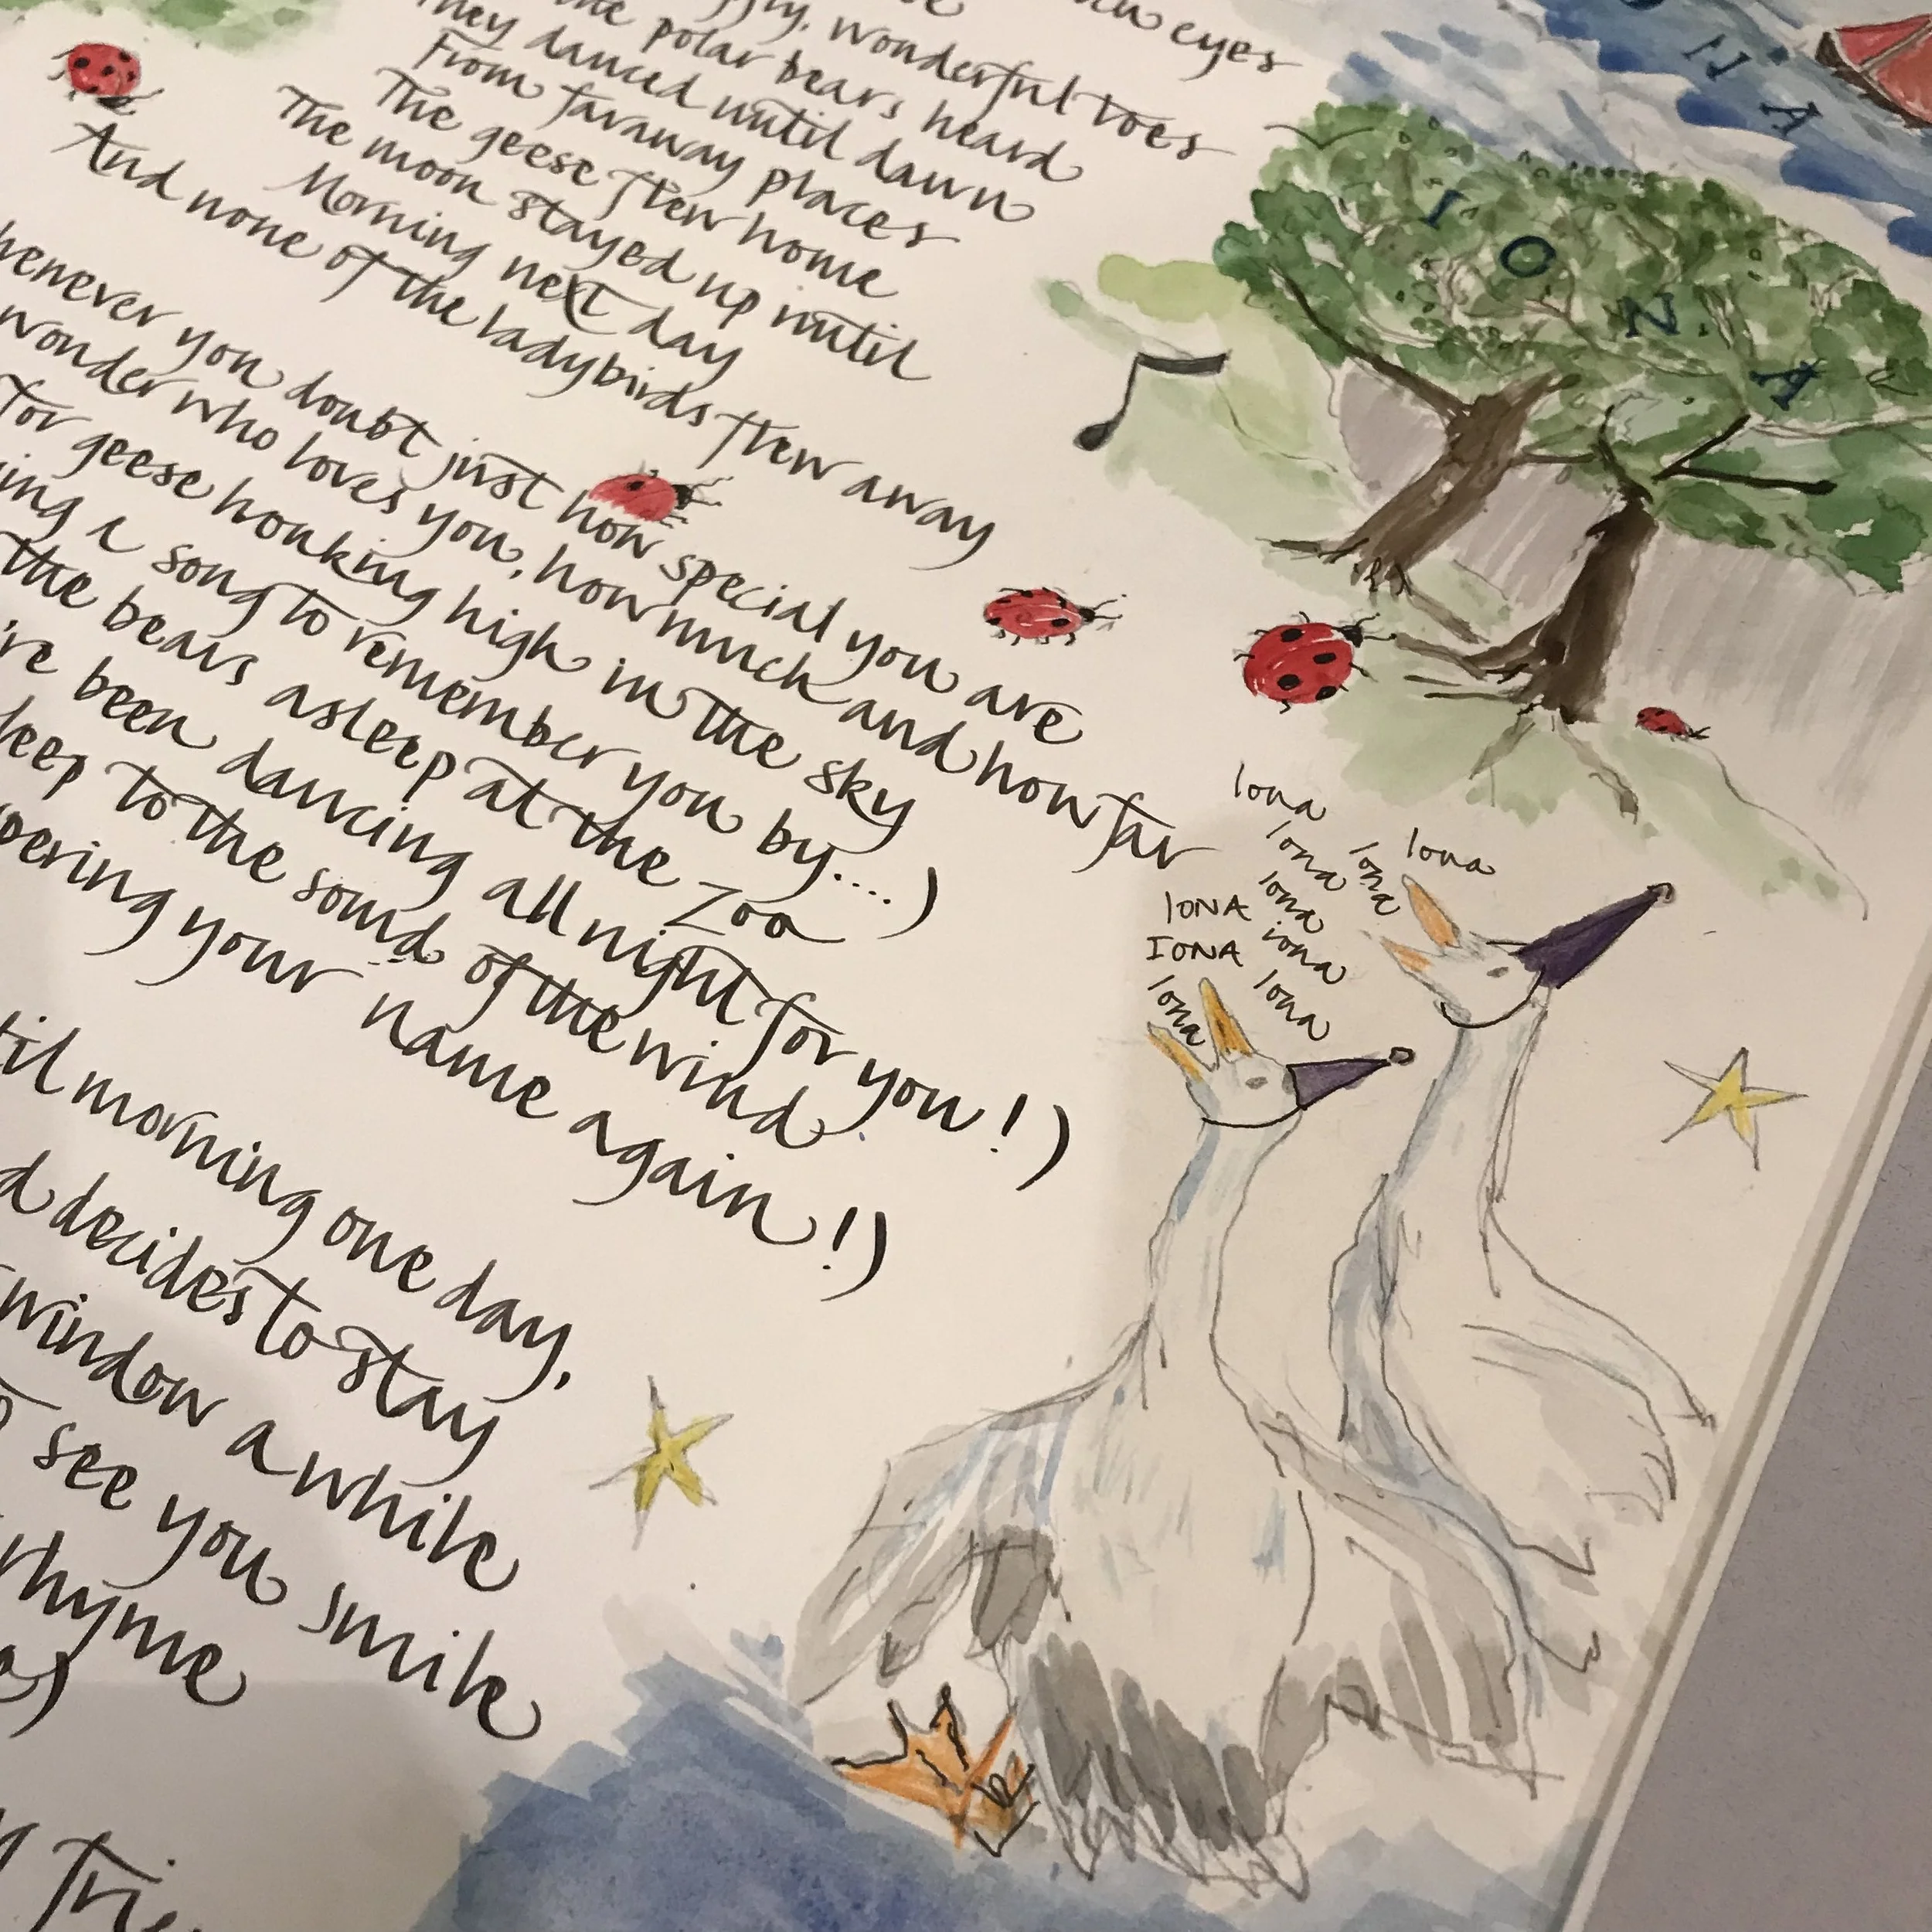 eyes
wonderful toes
the polar bears heard
They danced until dawn
From faraway places
The geese flew home
The moon stayed up until
Morning next day
And none of the ladybirds flew away
henever you doubt just how special you are
wonder who loves you, how much and how far
for geese honking high in the sky
ing a song to remember you by...)
the bears asleep at the zoo
're been dancing all night for you!)
leep to the sound of the wind
pering your name again!)
til morning one day,
d decides to stay
window a while
see you smile
rhyme
Iona
Iona
Iona
Iona
Iona
IONA
iona
IONA
Iona
Iona
I O N A
N A